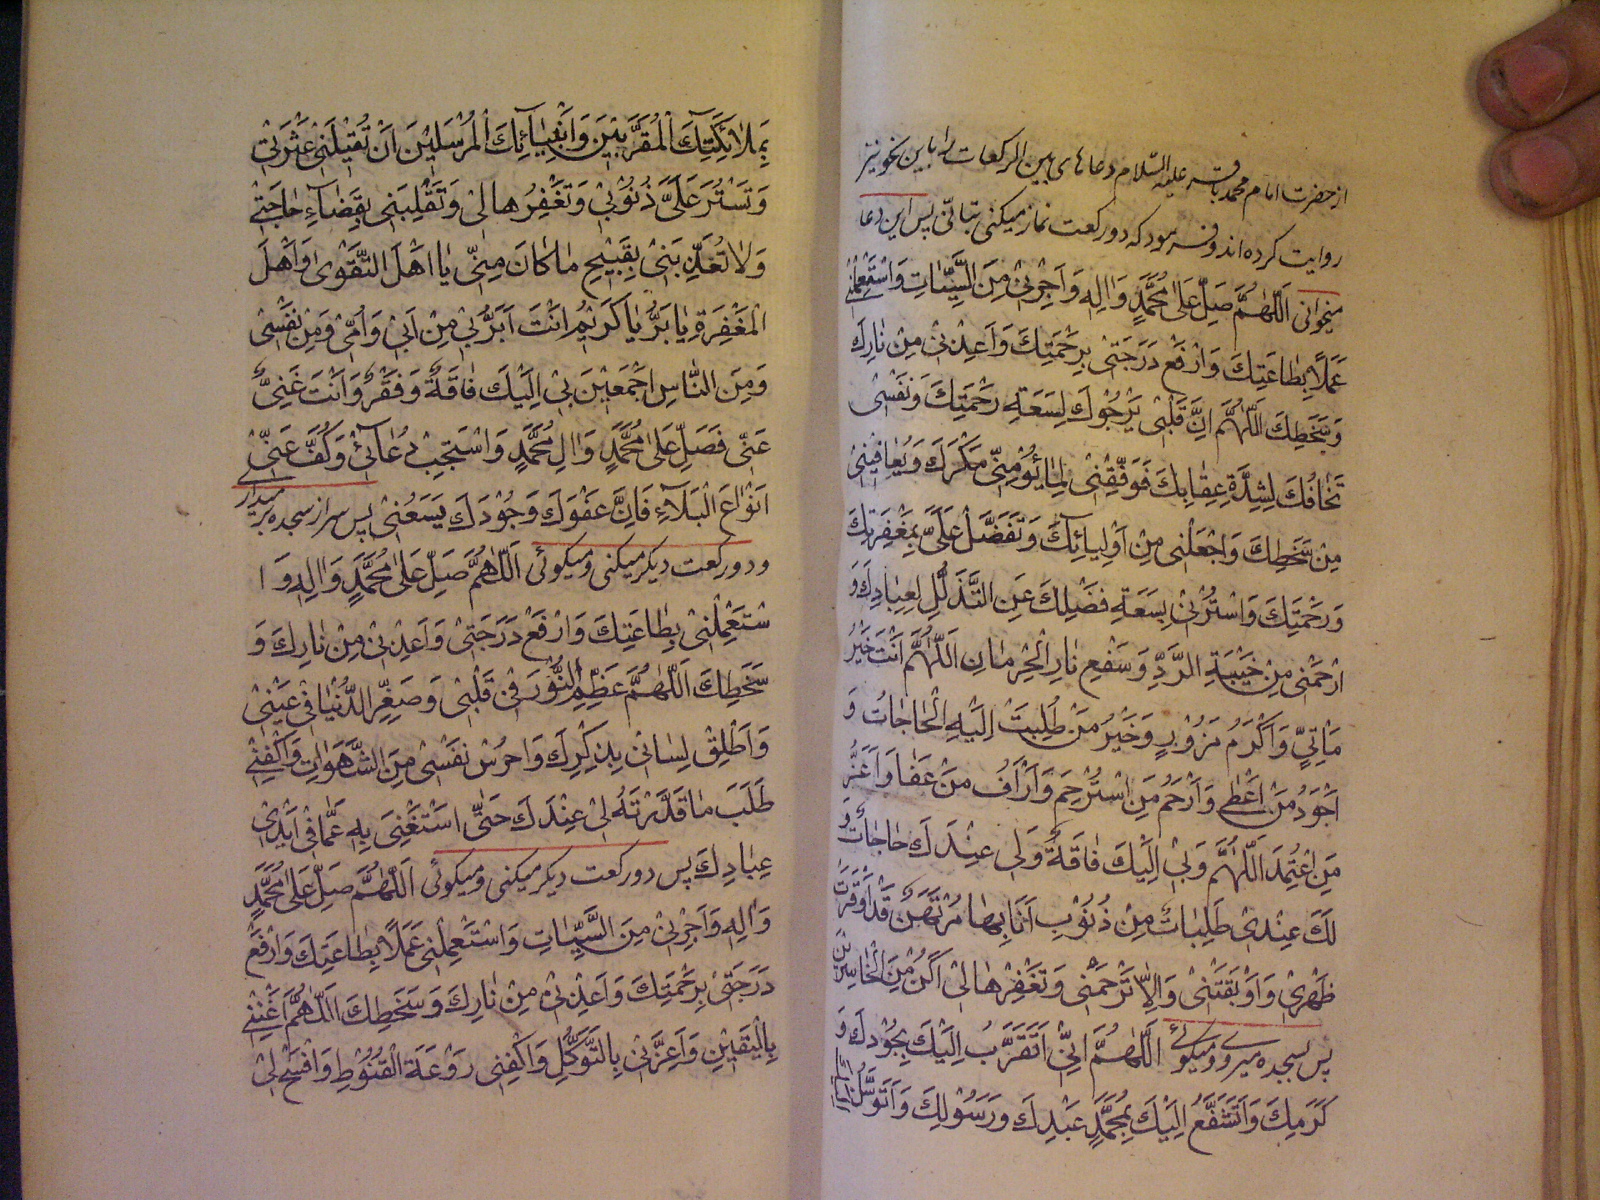 از حضرت امام محمد باقر علیه السّلام دعاهای بین الرکعات را باین نحو نیز
روایت کرده‌اند و فرمود که دو رکعت نماز میکنی بتأنّی پس این دعا
میخوانی اَللّٰهُمَّ صَلِّ عَلٰی مُحَمَّدٍ وَاٰلِهِ وَاَجِرْنیٖ مِنَ السَّیِّئٰاتِ وَاسْتَعْمِلْنیٖ
عَمَلًا بِطٰاعَتِكَ وَارْفَعْ دَرَجَتیٖ بِرَحْمَتِكَ وَاَعِذْنیٖ مِنْ نٰارِكَ
وَسَخَطِكَ اَللّٰهُمَّ اِنَّ قَلْبیٖ یَرْجُوكَ لِسَعَةِ رَحْمَتِكَ وَنَفْسیٖ
تَخٰافُكَ لِشِدَّةِ عِقٰابِكَ فَوَفِّقْنیٖ لِمٰا یُؤْمِنّیٖ مَكْرَكَ وَیُعٰافِینیٖ
مِنْ سَخَطِكَ وَاجْعَلْنیٖ مِنْ اَوْلِیٰآئِكَ وَتَفَضَّلْ عَلَیَّ بِمَغْفِرَتِكَ
وَرَحْمَتِكَ وَاسْتُرْنیٖ بِسَعَةِ فَضْلِكَ عَنِ التَّذَلُّلِ لِعِبٰادِكَ وَ
ارْحَمْنیٖ مِنْ خَیْبَةِ الرَّدِّ وَسَفْعِ نٰارِ الْحِرْمٰانِ اَللّٰهُمَّ اَنْتَ خَیْرُ
مَاْتِیٍّ وَاَكْرَمُ مَزُوْرٍ وَخَیْرُ مَنْ طُلِبَتْ اِلَیْهِ الْحٰاجٰاتُ وَ
اَجْوَدُ مَنْ اَعْطٰی وَاَرْحَمُ مَنِ اسْتُرْحِمَ وَاَرْاَفُ مَنْ عَفٰا وَاَعَزُّ
مَنِ اعْتُمِدَ اَللّٰهُمَّ وَلیٖ اِلَیْكَ فٰاقَةٌ وَلیٖ عِنْدَكَ حٰاجٰاتٌ وَ
لَكَ عِنْدیٖ طَلِبٰاتٌ مِنْ ذُنُوْبٍ اَنَا بِهٰا مُرْتَهَنٌ قَدْ اَوْقَرَتْ
ظَهْریٖ وَاَوْبَقَتْنیٖ وَاِلّٰا تَرْحَمْنیٖ وَتَغْفِرْهٰا لیٖ اَكُنْ مِنَ الْخٰاسِرِیْنَ
پس بسجده میروی و میگوئی اَللّٰهُمَّ اِنّیٖ اَتَقَرَّبُ اِلَیْكَ بِجُوْدِكَ وَ
كَرَمِكَ وَاَتَشَفَّعُ اِلَیْكَ بِمُحَمَّدٍ عَبْدِكَ وَرَسُوْلِكَ وَاَتَوَسَّلُ اِلَیْكَ
بِمَلٰائِكَتِكَ الْمُقَرَّبیْنَ وَاَنْبِیٰآئِكَ الْمُرْسَلیْنَ اَنْ تُقیْلَنیٖ عَثْرَتیٖ
وَتَسْتُرَ عَلَیَّ ذُنُوْبیٖ وَتَغْفِرَهٰا لیٖ وَتَقْلِبَنیٖ بِقَضٰآءِ حٰاجَتیٖ
وَلٰا تُعَذِّبَنیٖ بِقَبیْحٍ مٰا كٰانَ مِنّیٖ یٰا اَهْلَ التَّقْوٰی وَاَهْلَ
الْمَغْفِرَةِ یٰا بَرُّ یٰا كَریْمُ اَنْتَ اَبَرُّ بیٖ مِنْ اَبیٖ وَاُمّیٖ وَمِنْ نَفْسیٖ
وَمِنَ النّٰاسِ اَجْمَعیْنَ بیٖ اِلَیْكَ فٰاقَةٌ وَفَقْرٌ وَاَنْتَ غَنِیٌّ
عَنّیٖ فَصَلِّ عَلٰی مُحَمَّدٍ وَاٰلِ مُحَمَّدٍ وَاسْتَجِبْ دُعٰآئیٖ وَكُفَّ عَنّیٖ
اَنْوٰاعَ الْبَلٰآءِ فَاِنَّ عَفْوَكَ وَجُوْدَكَ یَسَعُنیٖ پس سر از سجده برمیداری
و دو رکعت دیکر میکنی و میگوئی اَللّٰهُمَّ صَلِّ عَلٰی مُحَمَّدٍ وَاٰلِهِ وَ ا
سْتَعْمِلْنیٖ بِطٰاعَتِكَ وَارْفَعْ دَرَجَتیٖ وَاَعِذْنیٖ مِنْ نٰارِكَ وَ
سَخَطِكَ اَللّٰهُمَّ عَظِّمِ النُّوْرَ فیٖ قَلْبیٖ وَصَغِّرِ الدُّنْیٰا فیٖ عَیْنیٖ
وَاَطْلِقْ لِسٰانیٖ بِذِكْرِكَ وَاحْرُسْ نَفْسیٖ مِنَ الشَّهَوٰاتِ وَاكْفِنیٖ
طَلَبَ مٰا قَدَّرْتَهُ لیٖ عِنْدَكَ حَتّٰی اَسْتَغْنِیَ بِهِ عَمّٰا فیٖ اَیْدیٖ
عِبٰادِكَ پس دو رکعت دیکر میکنی و میگوئی اَللّٰهُمَّ صَلِّ عَلٰی مُحَمَّدٍ
وَاٰلِهِ وَاَجِرْنیٖ مِنَ السَّیِّئٰاتِ وَاسْتَعْمِلْنیٖ عَمَلًا بِطٰاعَتِكَ وَارْفَعْ
دَرَجَتیٖ بِرَحْمَتِكَ وَاَعِذْنیٖ مِنْ نٰارِكَ وَسَخَطِكَ اَللّٰهُمَّ اَغْنِنیٖ
بِالْیَقیْنِ وَاَعِزَّنیٖ بِالتَّوَكُّلِ وَاكْفِنیٖ رَوْعَةَ الْقُنُوْطِ وَافْسَحْ لیٖ